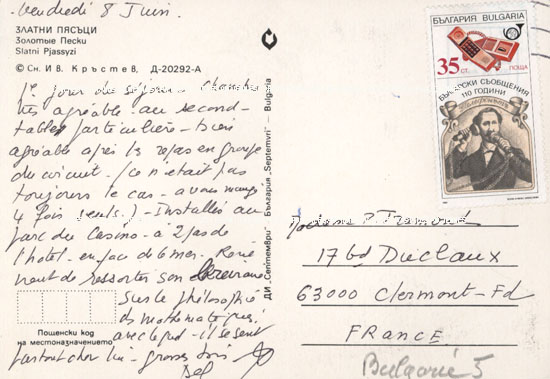 Vendredi 8 Juin.
ЗЛАТНИ ПЯСЪЦИ
Золотые Пески
Slatni Pjassyzi
© Сн. ИВ. Кръстев, Д-20292-А
1er jour de séjour - Chambre
très agréable au second -
table particulière - bien
agréable après les repas en groupe
du circuit. (ce n'était pas
toujours le cas - avons mangé
4 fois seuls) - Installés au
parc du Casino - à 2 pas de
l'hotel - en face de la mer. René
vient de ressortir son
sur la philosophie
des mathématiques
avec le - il se sent
partout chez lui - grosses bises
ДИ „Септември" България „Septemvri" - Bulgaria
Пощенски код
на местоназначението
БЪЛГАРИЯ BULGARIA
35 СТ.
ПОЩА
БЪЛГАРСКИ СЪОБЩЕНИЯ
110 ГОДИНИ
Madame P.
17 bd Duclaux
63000 Clermont-Fd
FRANCE
Bulgarie 5